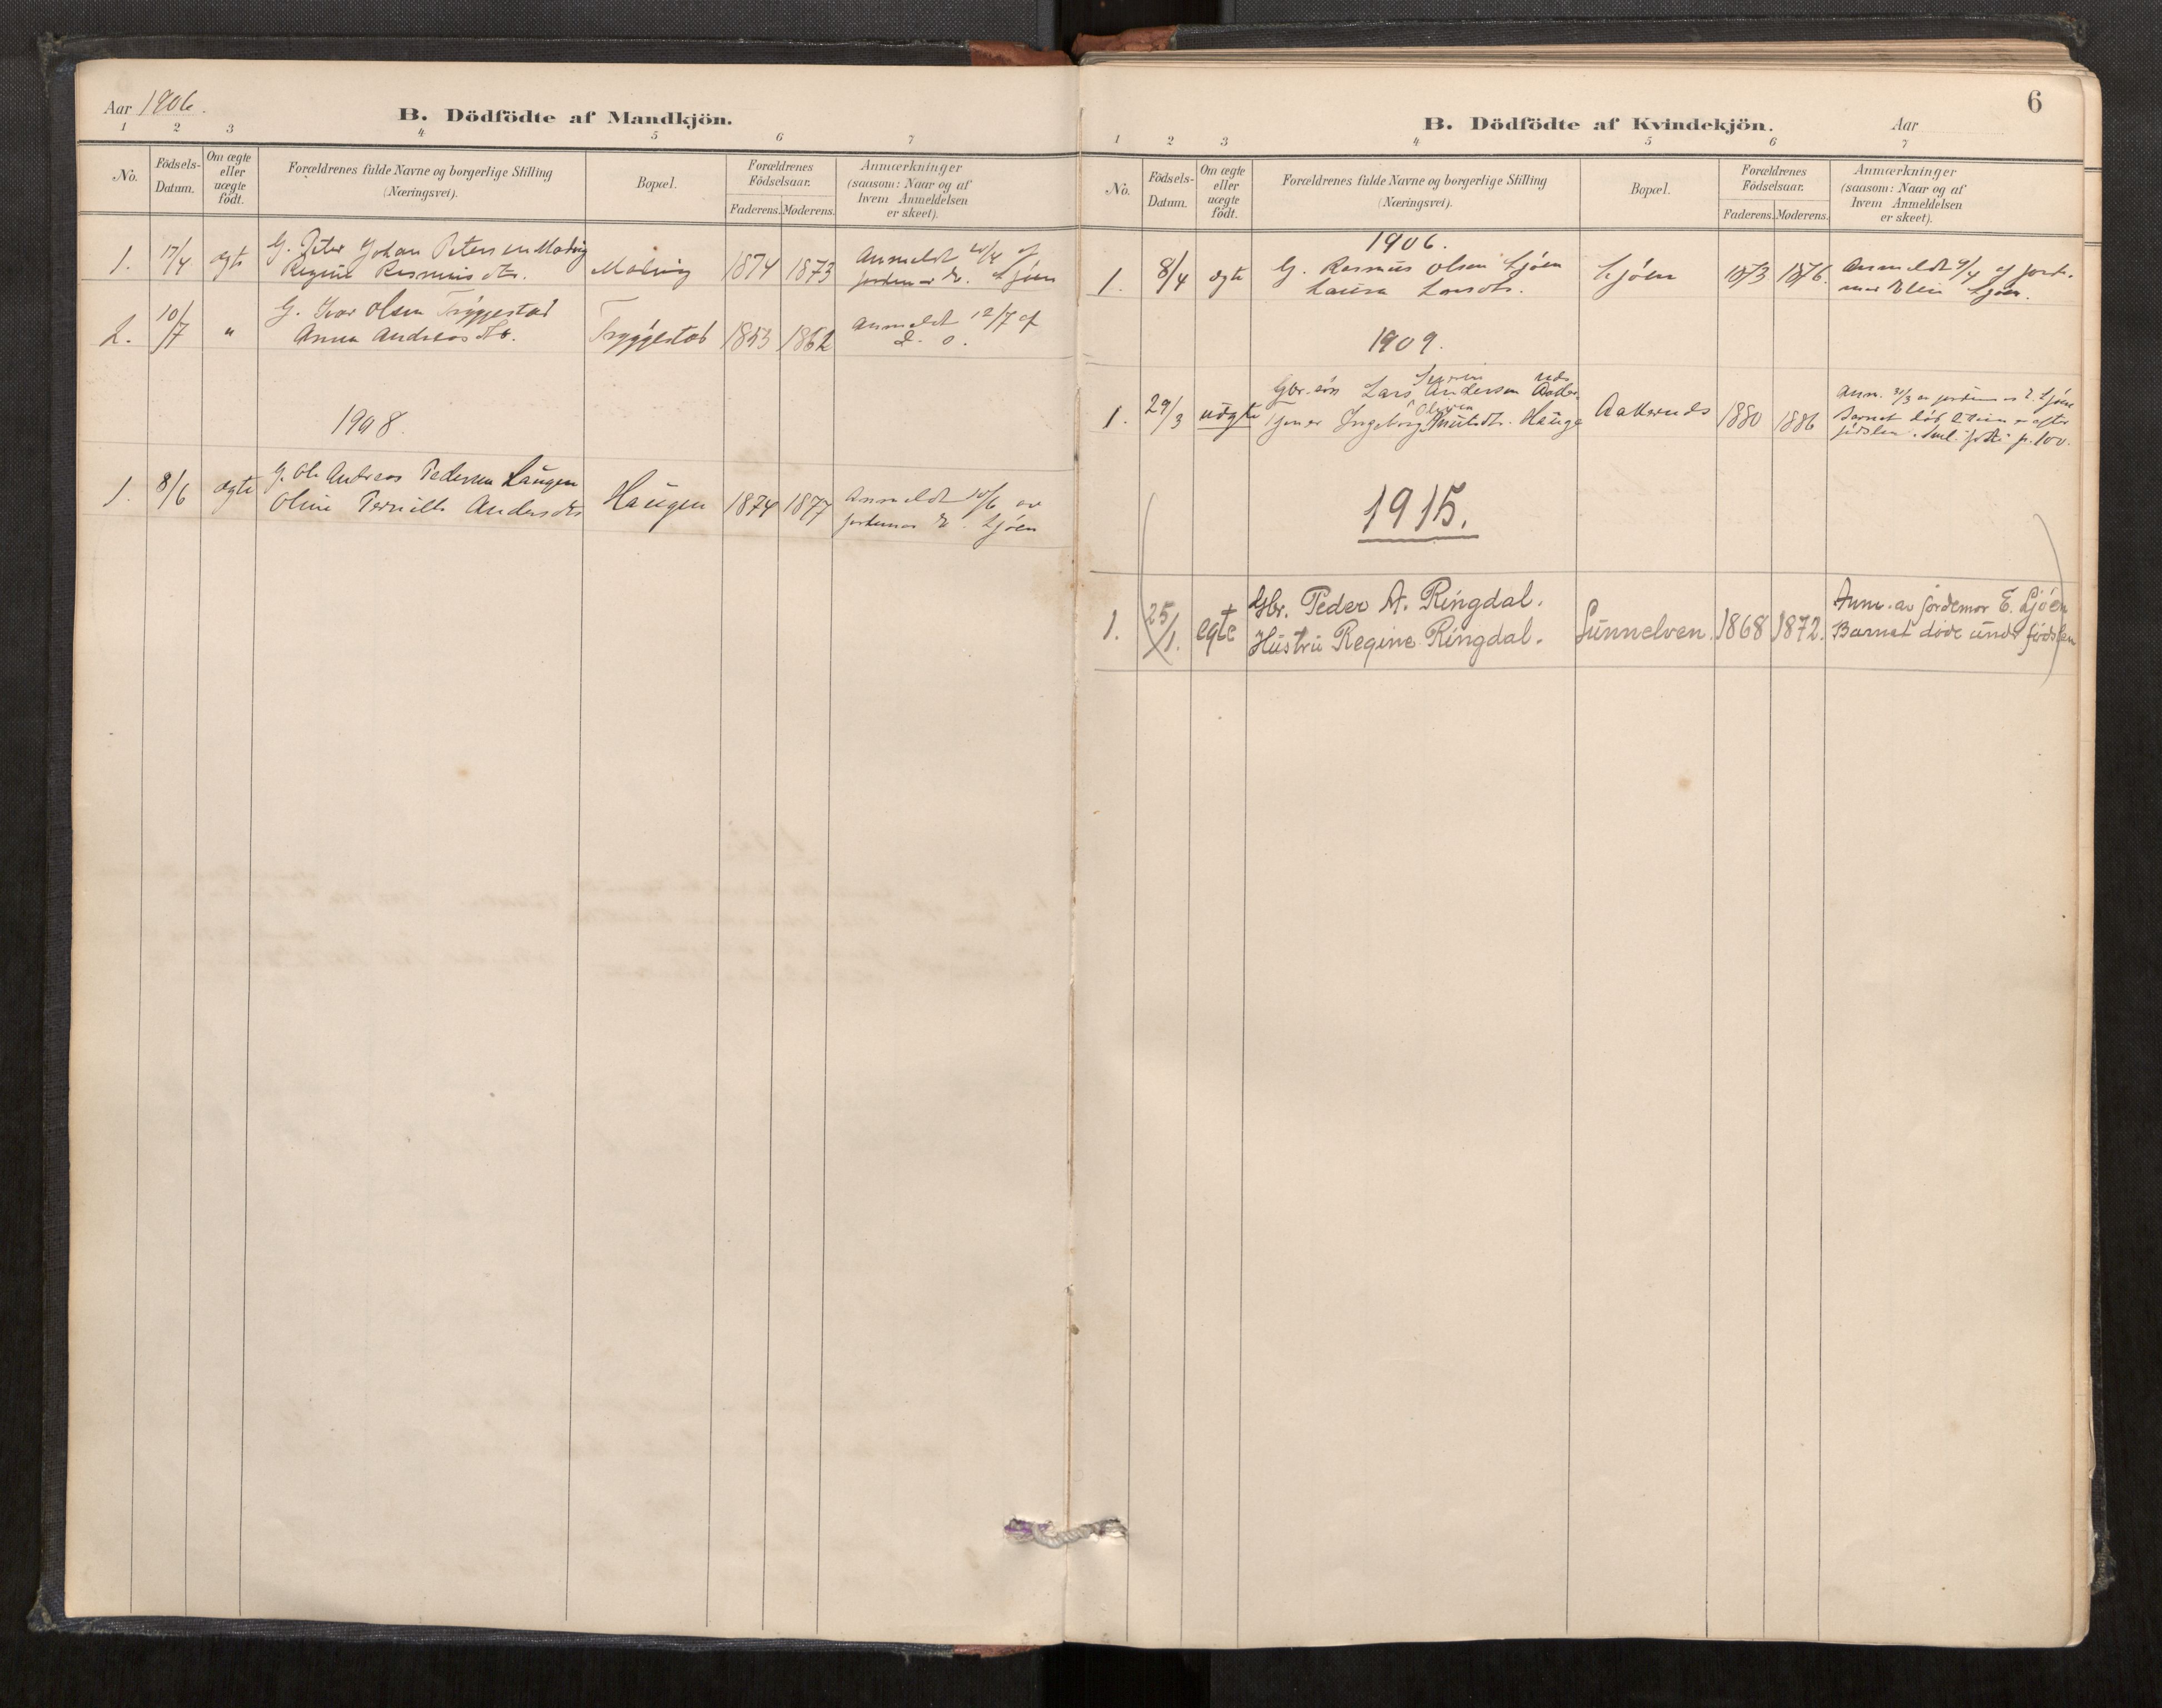 Aar 1906.
B. Dödfödte af Mandkjön.
1 2 3 4 5 6 7
No.
Födsels-Datum.
Om ægte eller uægte födt.
Forældrenes fulde Navne og borgerlige Stilling
(Næringsvei).
Bopæl.
Forældrenes Födselsaar.
Faderens. Moderens.
Anmærkninger
(saasom: Naar og af
hvem Anmeldelsen
er skeet).
1. 17/4 ægte G. Peter Johan Petersen Maløvig Maløvig 1874 1873 Anmeldt 20/4 af
Regine Rasmusdtr. jordemor E. Ljøen
2. 10/7 " G. Ivar Olsen Tryggestad Tryggestad 1853 1862 Anmeldt 12/7 af
Anna Andreasdtr. d. o.
1908.
1. 8/6 ægte G. Ole Andreas Pedersen Haugen Haugen 1874 1877 Anmeldt 10/6 av
Oline Pernille Andersdtr jordemor E. Ljøen
6
B. Dödfödte af Kvindekjön. Aar
1 2 3 4 5 6 7
No.
Födsels-Datum.
Om ægte eller uægte födt.
Forældrenes fulde Navne og borgerlige Stilling
(Næringsvei).
Bopæl.
Forældrenes Födselsaar.
Faderens. Moderens.
Anmærkninger
(saasom: Naar og af
hvem Anmeldelsen
er skeet).
1906.
1. 8/4 ægte G. Rasmus Olsen Ljøen Ljøen 1873 1876. Anmeldt 9/4 af jorde-
Laura Larsdtr. mor Elin Ljøen.
1909.
1. 29/3 uægte Gbr. søn Lars Andersen 1880 1886 Anm. 31/3 av jordemor E. Ljøen
Ingeborg Olivia Knutsdtr. Hauge Barnet efter
fødslen. p. 100.
1915.
1. 25/1. egte Gbr. Peder A. Ringdal. Sunnelven. 1868 1872. Anm. av jordemor E. Ljøen
Hustru Regine Ringdal. Barnet døde under fødslen